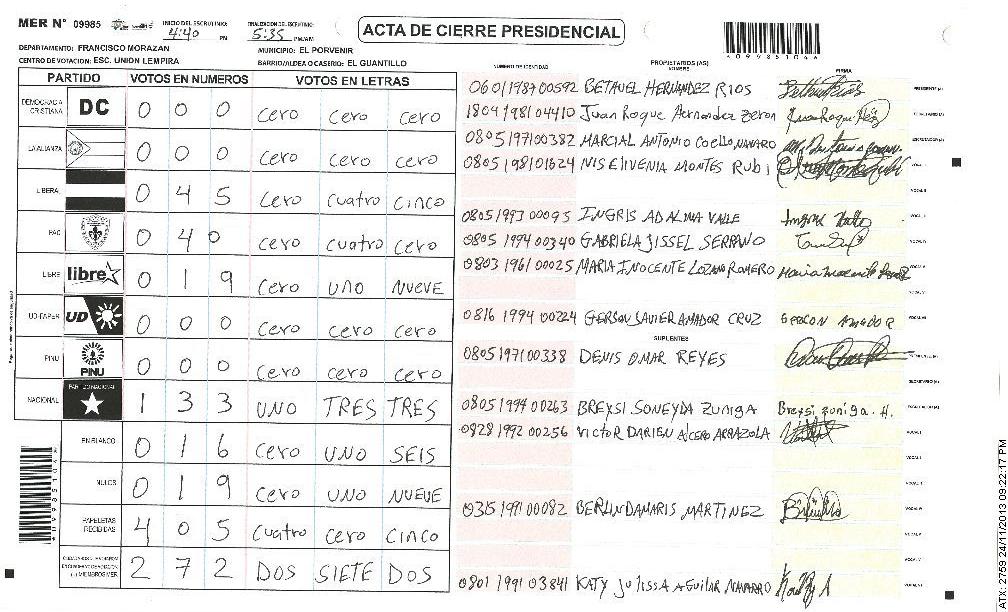 MER N° 09985
INICIO DEL ESCRUTINIO: 4:40 PM
FINALIZACION DEL ESCRUTINIO: 5:35 PM/AM
ACTA DE CIERRE PRESIDENCIAL
DEPARTAMENTO: FRANCISCO MORAZAN
MUNICIPIO: EL PORVENIR
CENTRO DE VOTACION: ESC. UNION LEMPIRA
BARRIO/ALDEA O CASERIO: EL GUANTILLO
PARTIDO VOTOS EN NUMEROS VOTOS EN LETRAS
DEMOCRACIA CRISTIANA DC 0 0 0 Cero Cero Cero
LA ALIANZA 0 0 0 Cero Cero Cero
LIBERAL 0 4 5 Cero Cuatro Cinco
PAC 0 4 0 Cero Cuatro Cero
LIBRE libre 0 1 9 Cero UNO NUEVE
UD-FAPER UD 0 0 0 Cero Cero Cero
PINU PINU 0 0 0 Cero Cero Cero
NACIONAL PARTIDO NACIONAL 1 3 3 UNO TRES TRES
EN BLANCO 0 1 6 Cero UNO SEIS
NULOS 0 1 9 Cero UNO NUEVE
PAPELETAS RECIBIDAS 4 0 5 Cuatro Cero Cinco
2 7 2 DOS SIETE DOS
NUMERO DE IDENTIDAD PROPIETARIOS (AS) NOMBRE FIRMA
0601198700592 BETAUEL HERNANDEZ RIOS PRESIDENTE (A)
1804198104410 Juan Roque Hernandez Zeron SECRETARIO (A)
0805197100382 MARCIAL ANTONIO Coello NAVARRO ESCRUTADOR (A)
0805198101624 NIS ELIVENIA MONTES RUBI VOCAL I
VOCAL II
0805199300095 INGRIS ADALMA VALLE VOCAL III
0805199400340 GABRIELA JISSEL SERRANO VOCAL IV
0803196100025 MARIA INOCENTE LOZANO ROMERO VOCAL V
VOCAL VI
0816199400224 GERSON SAVIER AMADOR CRUZ GERSON AMADOR VOCAL VII
SUPLENTES
0805197100338 DENIS OMAR REYES
SECRETARIO (A)
0805199400263 BREYSI SONEYDA ZUNIGA Breysi Zuniga. H. ESCRUTADOR (A)
0828199200256 VICTOR DARIEN ALCERO ARRAZOLA VOCAL I
VOCAL II
VOCAL III
0315199100082 BERLIN DAMARIS MARTINEZ VOCAL IV
VOCAL V
VOCAL VI
0801199103841 KATY JULISSA AGUILAR NAVARRO VOCAL VII
ATX: 2759 24/11/2013 09:22:17 PM